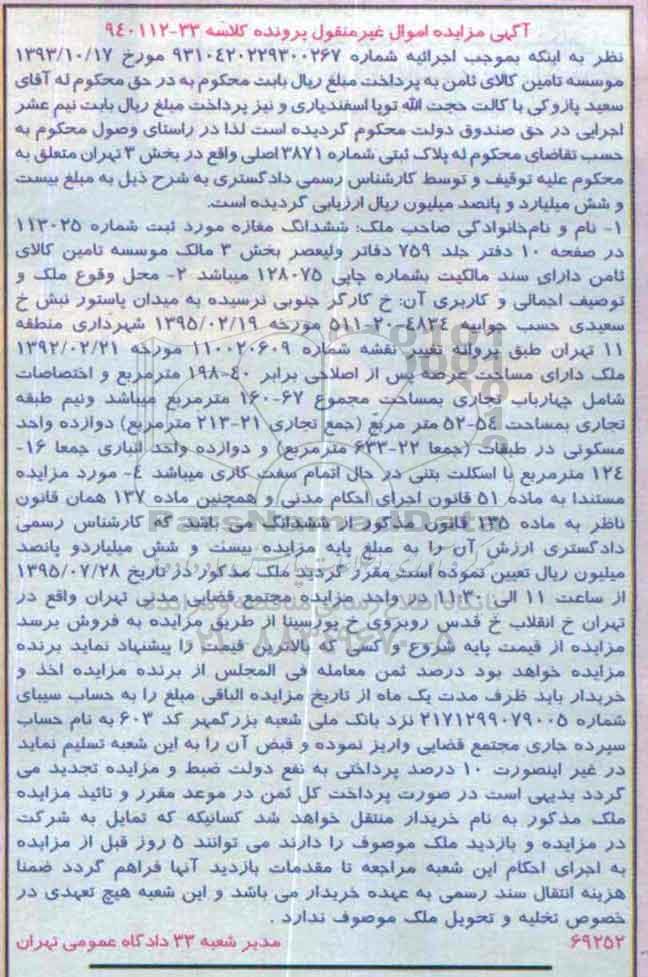 آگهی مزایده اموال غیرمنقول پرونده کلاسه ۳۳-۹۴۰۱۱۲
نظر به اینکه بموجب اجرائیه شماره ۹۳۱۰۴۲۰۲۲۹۳۰۰۲۶۷ مورخ ۱۳۹۳/۱۰/۱۷
موسسه تامین کالای ثامن به پرداخت مبلغ ریال بابت محکوم به در حق محکوم له آقای
سعید پازوکی با کالت حجت الله توپا اسفندیاری و نیز پرداخت مبلغ ریال بابت نیم عشر
اجرایی در حق صندوق دولت محکوم گردیده است لذا در راستای وصول محکوم به
حسب تقاضای محکوم له پلاک ثبتی شماره ۳۸۷۱ اصلی واقع در بخش ۳ تهران متعلق به
محکوم علیه توقیف و توسط کارشناس رسمی دادگستری به شرح ذیل به مبلغ بیست
و شش میلیارد و پانصد میلیون ریال ارزیابی گردیده است.
۱- نام و نام‌خانوادگی صاحب ملک: ششدانگ مغازه مورد ثبت شماره ۱۱۳۰۲۵
در صفحه ۱۰ دفتر جلد ۷۵۹ دفاتر ولیعصر بخش ۳ مالک موسسه تامین کالای
ثامن دارای سند مالکیت بشماره چاپی ۱۲۸۰۷۵ میباشد ۲- محل وقوع ملک و
توصیف اجمالی و کاربری آن: خ کارگر جنوبی نرسیده به میدان پاستور نبش خ
سعیدی حسب جوابیه ۴۸۳۴-۲۰-۵۱۱ مورخه ۱۳۹۵/۰۲/۱۹ شهرداری منطقه
۱۱ تهران طبق پروانه تغییر نقشه شماره ۱۱۰۰۲۰۶۰۹ مورخه ۱۳۹۲/۰۲/۲۱
ملک دارای مساحت عرصه پس از اصلاحی برابر ۴۰-۱۹۸ مترمربع و اختصاصات
شامل چهارباب تجاری بمساحت مجموع ۶۷-۱۶۰ مترمربع میباشد ونیم طبقه
تجاری بمساحت ۵۴-۵۲ متر مربع (جمع تجاری ۲۱-۲۱۳ مترمربع) دوازده واحد
مسکونی در طبقات (جمعا ۲۲-۶۳۳ مترمربع) و دوازده واحد انباری جمعا ۱۶-
۱۲۴ مترمربع با اسکلت بتنی در حال اتمام سفت کاری میباشد ۴- مورد مزایده
مستندا به ماده ۵۱ قانون اجرای احکام مدنی و همچنین ماده ۱۳۷ همان قانون
ناظر به ماده ۱۳۵ قانون مذکور از ششدانگ می باشد که کارشناس رسمی
دادگستری ارزش آن را به مبلغ پایه مزایده بیست و شش میلیاردو پانصد
میلیون ریال تعیین نموده است مقرر گردید ملک مذکور در تاریخ ۱۳۹۵/۰۷/۲۸
از ساعت ۱۱ الی ۱۱:۳۰ در واحد مزایده مجتمع قضایی مدنی تهران واقع در
تهران خ انقلاب خ قدس روبروی خ پورسینا از طریق مزایده به فروش برسد
مزایده از قیمت پایه شروع و کسی که بالاترین قیمت را پیشنهاد نماید برنده
مزایده خواهد بود درصد ثمن معامله فی المجلس از برنده مزایده اخذ و
خریدار باید ظرف مدت یک ماه از تاریخ مزایده الباقی مبلغ را به حساب سیبای
شماره ۲۱۷۱۲۹۹۰۷۹۰۰۵ نزد بانک ملی شعبه بزرگمهر کد ۶۰۳ به نام حساب
سپرده جاری مجتمع قضایی واریز نموده و قبض آن را به این شعبه تسلیم نماید
در غیر اینصورت ۱۰ درصد پرداختی به نفع دولت ضبط و مزایده تجدید می
گردد بدیهی است در صورت پرداخت کل ثمن در موعد مقرر و تائید مزایده
ملک مذکور به نام خریدار منتقل خواهد شد کسانیکه که تمایل به شرکت
در مزایده و بازدید ملک موصوف را دارند می توانند ۵ روز قبل از مزایده
به اجرای احکام این شعبه مراجعه تا مقدمات بازدید آنها فراهم گردد ضمنا
هزینه انتقال سند رسمی به عهده خریدار می باشد و این شعبه هیچ تعهدی در
خصوص تخلیه و تحویل ملک موصوف ندارد .
۶۹۲۵۲ مدیر شعبه ۳۳ دادگاه عمومی تهران